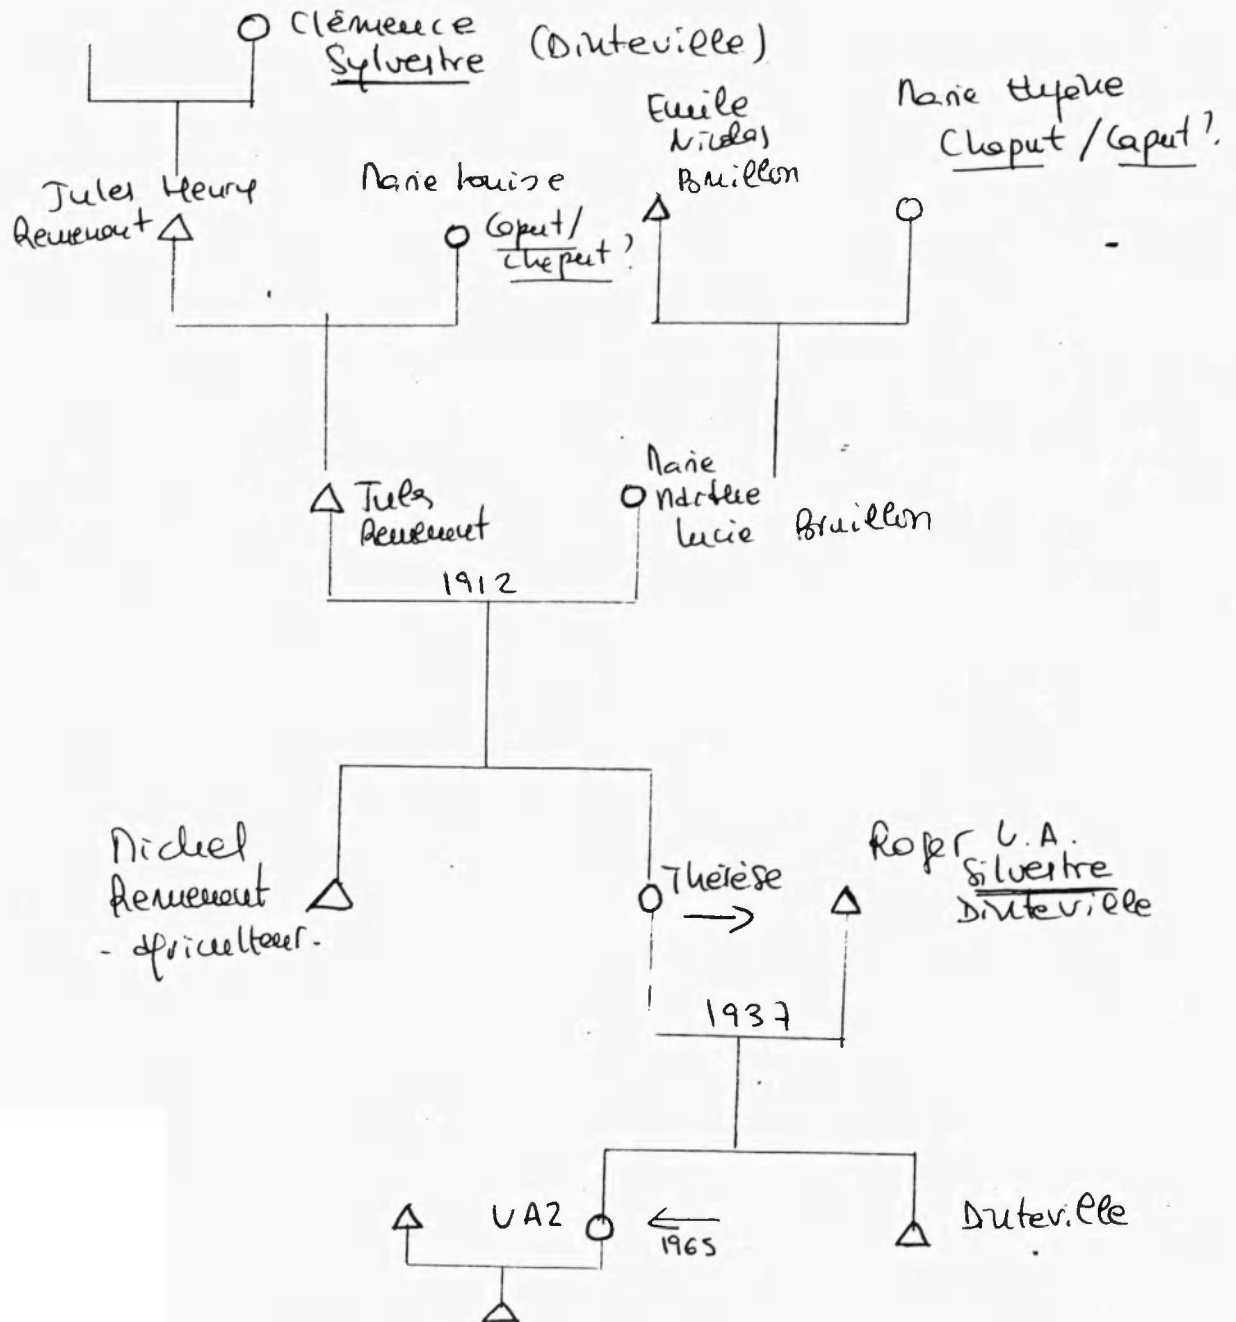 Clémence
Sylvestre (Dinteville)
Emile
Nicolas
Bruillon
Marie
Chaput / Caput ?
Jules Henry
Remenont
Marie Louise
Caput /
Chaput ?
Jules
Remenont
Marie
Marthe
Lucie Bruillon
1912
Michel
Remenont
- agriculteur -
Thérèse
Roger U.A.
Silvestre
Dinteville
1937
UA2
1965
Dinteville